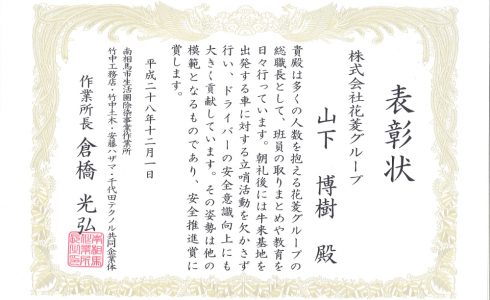 表彰状
株式会社花菱グループ
山下 博樹 殿
貴殿は多くの人数を抱える花菱グループの
総職長として、班員の取りまとめや教育を
日々行っています。朝礼後には牛来基地を
出発する車に対する立哨活動を欠かさず
行い、ドライバーの安全意識向上にも
大きく貢献しています。その姿勢は他の
模範となるものであり、安全推進賞に
賞します。
平成二十八年十二月一日
南相馬市生活圏除染事業作業所
竹中工務店・竹中土木・安藤ハザマ・千代田テクノル共同企業体
作業所長 倉橋 光弘